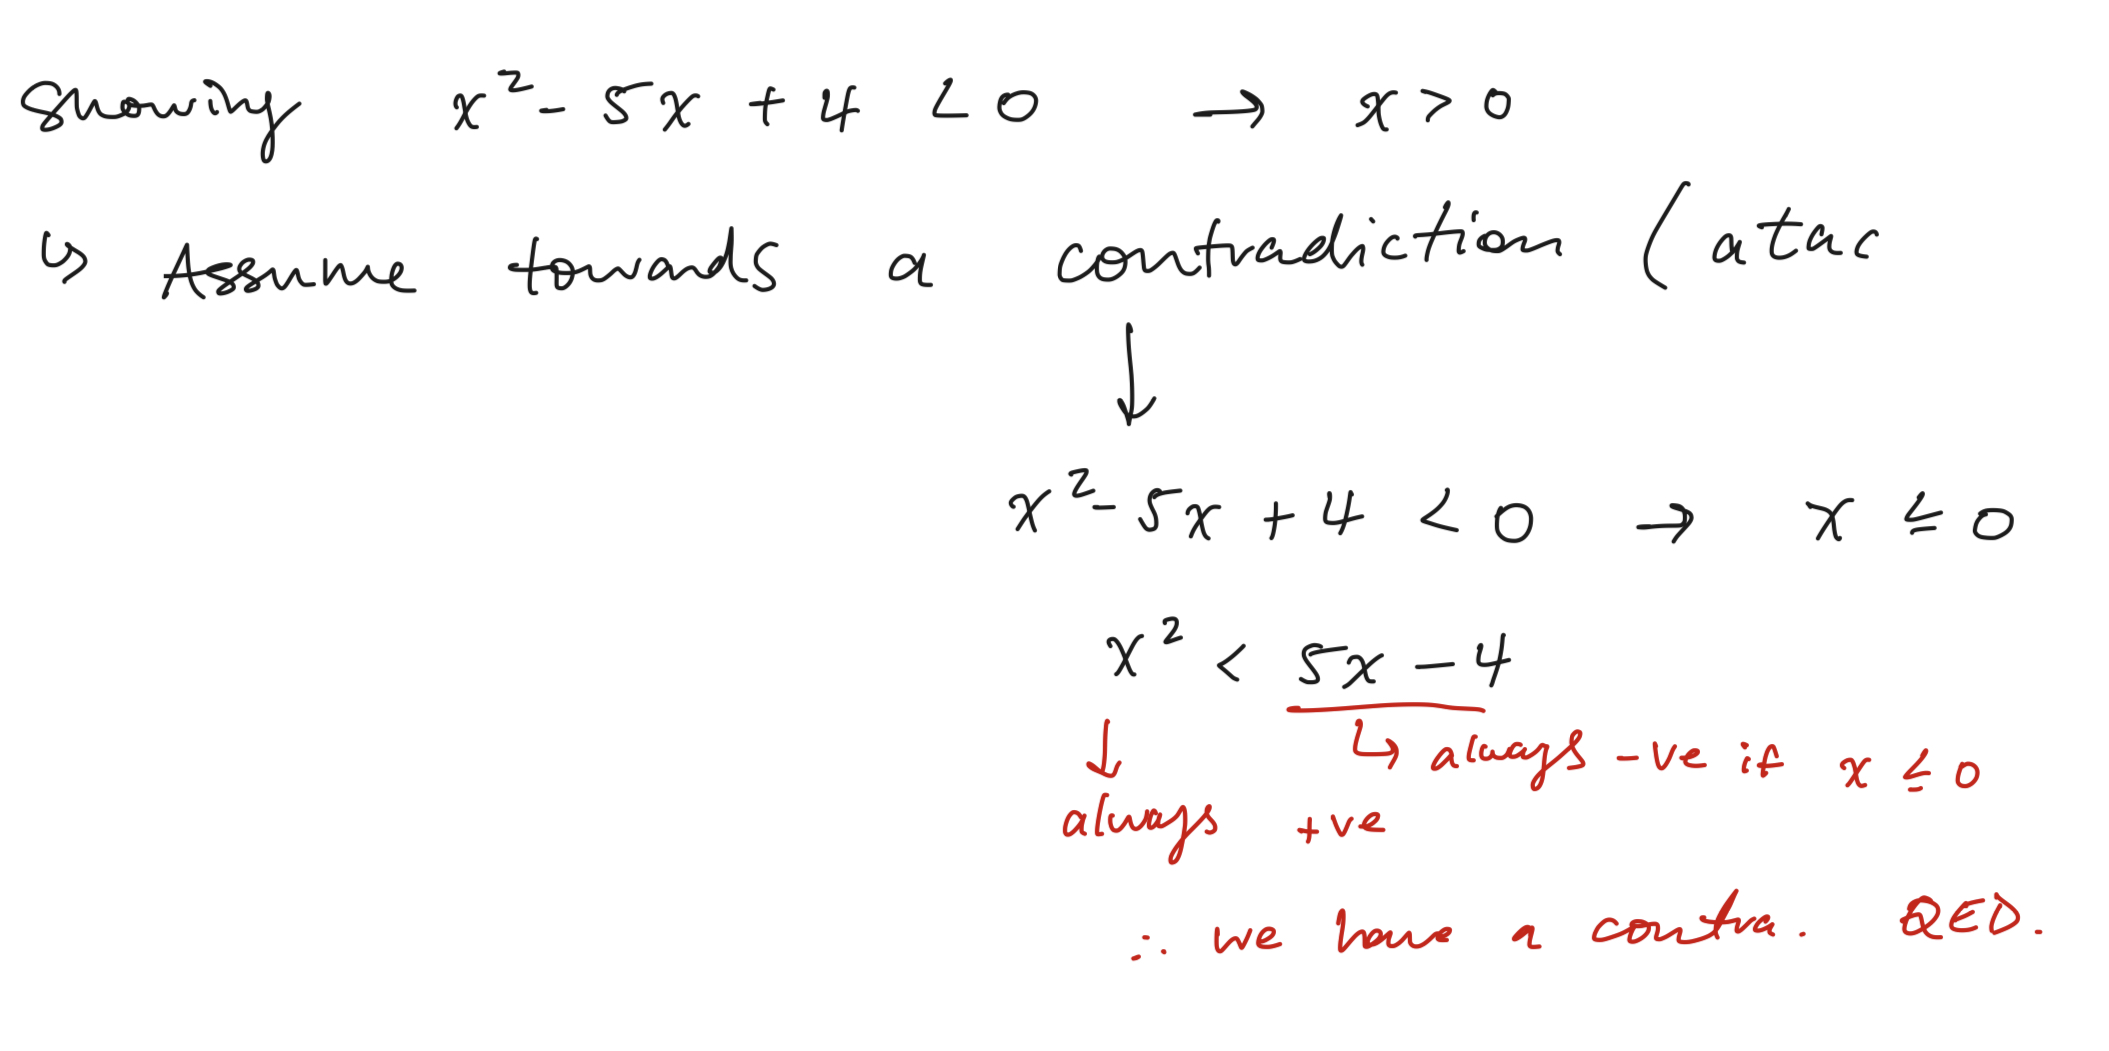 Showing x² - 5x + 4 < 0 → x > 0
↳ Assume towards a contradiction (atac
↓
x² - 5x + 4 < 0 → x ≤ 0
x² < 5x - 4
↓ ↳ always -ve if x ≤ 0
always +ve
∴ we have a contra. QED.